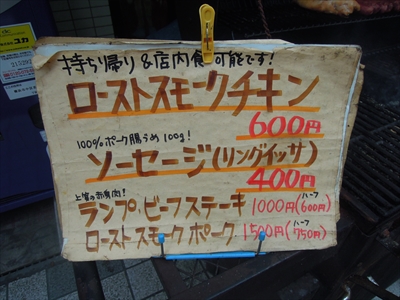 持ち帰り & 店内食 可能です!
ローストスモークチキン
600円
100%ポーク腸うめ 100g!
ソーセージ(リングイッサ)
400円
上質の赤身肉!
ランプ・ビーフステーキ 1000円(ハーフ600円)
ローストスモーク ポーク 1500円(ハーフ750円)
ユカ